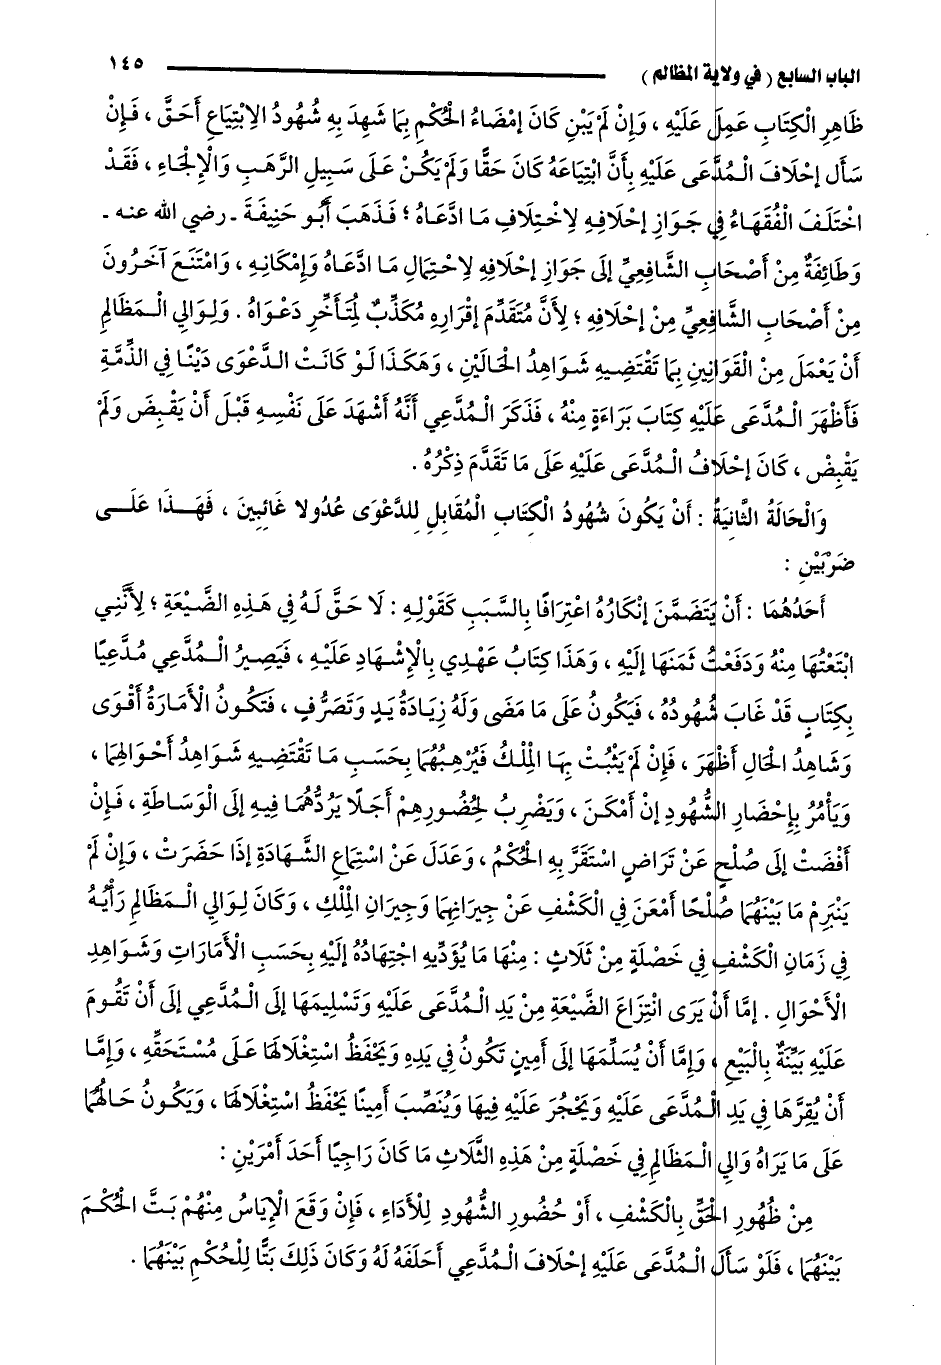 الباب السابع ( في ولاية المظالم ) ١٤٥
ظَاهِرِ الْكِتَابِ عَمِلَ عَلَيْهِ ، وَإِنْ لَمْ يَبِنْ كَانَ إمْضَاءُ الْحُكْمِ بِمَا شَهِدَ بِهِ شُهُودُ الِابْتِيَاعِ أَحَقَّ ، فَإِنْ
سَأَلَ إحْلَافَ الْمُدَّعَى عَلَيْهِ بِأَنَّ ابْتِيَاعَهُ كَانَ حَقًّا وَلَمْ يَكُنْ عَلَى سَبِيلِ الرَّهَبِ وَالْإِلْجَاءِ ، فَقَدْ
اخْتَلَفَ الْفُقَهَاءُ فِي جَوَازِ إحْلَافِهِ لِاخْتِلَافِ مَا ادَّعَاهُ ؛ فَذَهَبَ أَبُو حَنِيفَةَ ـ رضي الله عنه ـ
وَطَائِفَةٌ مِنْ أَصْحَابِ الشَّافِعِيِّ إلَى جَوَازِ إحْلَافِهِ لِاحْتِمَالِ مَا ادَّعَاهُ وَإِمْكَانِهِ ، وَامْتَنَعَ آخَرُونَ
مِنْ أَصْحَابِ الشَّافِعِيِّ مِنْ إحْلَافِهِ ؛ لِأَنَّ مُتَقَدِّمَ إقْرَارِهِ مُكَذِّبٌ لِمُتَأَخِّرِ دَعْوَاهُ . وَلِوَالِي الْمَظَالِمِ
أَنْ يَعْمَلَ مِنْ الْقَوَانِينِ بِمَا تَقْتَضِيهِ شَوَاهِدُ الْحَالَيْنِ ، وَهَكَذَا لَوْ كَانَتْ الدَّعْوَى دَيْنًا فِي الذِّمَّةِ
فَأَظْهَرَ الْمُدَّعَى عَلَيْهِ كِتَابَ بَرَاءَةٍ مِنْهُ ، فَذَكَرَ الْمُدَّعِي أَنَّهُ أَشْهَدَ عَلَى نَفْسِهِ قَبْلَ أَنْ يَقْبِضَ وَلَمْ
يَقْبِضْ ، كَانَ إحْلَافُ الْمُدَّعَى عَلَيْهِ عَلَى مَا تَقَدَّمَ ذِكْرُهُ .
وَالْحَالَةُ الثَّانِيَةُ : أَنْ يَكُونَ شُهُودُ الْكِتَابِ الْمُقَابِلِ لِلدَّعْوَى عُدُولا غَائِبِينَ ، فَهَذَا عَلَى
ضَرْبَيْنِ :
أَحَدُهُمَا : أَنْ يَتَضَمَّنَ إنْكَارُهُ اعْتِرَافًا بِالسَّبَبِ كَقَوْلِهِ : لَا حَقَّ لَهُ فِي هَذِهِ الضَّيْعَةِ ؛ لِأَنَّنِي
ابْتَعْتُهَا مِنْهُ وَدَفَعْتُ ثَمَنَهَا إلَيْهِ ، وَهَذَا كِتَابُ عَهْدِي بِالْإِشْهَادِ عَلَيْهِ ، فَيَصِيرُ الْمُدَّعِي مُدَّعِيًا
بِكِتَابٍ قَدْ غَابَ شُهُودُهُ ، فَيَكُونُ عَلَى مَا مَضَى وَلَهُ زِيَادَةُ يَدٍ وَتَصَرُّفٍ ، فَتَكُونُ الْأَمَارَةُ أَقْوَى
وَشَاهِدُ الْحَالِ أَظْهَرَ ، فَإِنْ لَمْ يَثْبُتْ بِهَا الْمِلْكُ فَيُرْهِبُهُمَا بِحَسَبِ مَا تَقْتَضِيهِ شَوَاهِدُ أَحْوَالِهِمَا ،
وَيَأْمُرُ بِإِحْضَارِ الشُّهُودِ إنْ أَمْكَنَ ، وَيَضْرِبُ لِحُضُورِهِمْ أَجَلًا يَرُدُّهُمَا فِيهِ إلَى الْوَسَاطَةِ ، فَإِنْ
أَفْضَتْ إلَى صُلْحٍ عَنْ تَرَاضٍ اسْتَقَرَّ بِهِ الْحُكْمُ ، وَعَدَلَ عَنْ اسْتِمَاعِ الشَّهَادَةِ إذَا حَضَرَتْ ، وَإِنْ لَمْ
يَنْبَرِمْ مَا بَيْنَهُمَا صُلْحًا أَمْعَنَ فِي الْكَشْفِ عَنْ جِيرَانِهِمَا وَجِيرَانِ الْمِلْكِ ، وَكَانَ لِوَالِي الْمَظَالِمِ رَأْيُهُ
فِي زَمَانِ الْكَشْفِ فِي خَصْلَةٍ مِنْ ثَلَاثٍ : مِنْهَا مَا يُؤَدِّيهِ اجْتِهَادُهُ إلَيْهِ بِحَسَبِ الْأَمَارَاتِ وَشَوَاهِدِ
الْأَحْوَالِ . إمَّا أَنْ يَرَى انْتِزَاعَ الضَّيْعَةِ مِنْ يَدِ الْمُدَّعَى عَلَيْهِ وَتَسْلِيمَهَا إلَى الْمُدَّعِي إلَى أَنْ تَقُومَ
عَلَيْهِ بَيِّنَةٌ بِالْبَيْعِ ، وَإِمَّا أَنْ يُسَلِّمَهَا إلَى أَمِينٍ تَكُونُ فِي يَدِهِ وَيَحْفَظُ اسْتِغْلَالَهَا عَلَى مُسْتَحَقِّهِ ، وَإِمَّا
أَنْ يُقِرَّهَا فِي يَدِ الْمُدَّعَى عَلَيْهِ وَيَحْجُرَ عَلَيْهِ فِيهَا وَيُنَصِّبَ أَمِينًا يَحْفَظُ اسْتِغْلَالَهَا ، وَيَكُونُ حَالُهُمَا
عَلَى مَا يَرَاهُ وَالِي الْمَظَالِمِ فِي خَصْلَةٍ مِنْ هَذِهِ الثَّلَاثِ مَا كَانَ رَاجِيًا أَحَدَ أَمْرَيْنِ :
مِنْ ظُهُورِ الْحَقِّ بِالْكَشْفِ ، أَوْ حُضُورِ الشُّهُودِ لِلْأَدَاءِ ، فَإِنْ وَقَعَ الْإِيَاسُ مِنْهُمْ بَتَّ الْحُكْمَ
بَيْنَهُمَا ، فَلَوْ سَأَلَ الْمُدَّعَى عَلَيْهِ إحْلَافَ الْمُدَّعِي أَحَلَفَهُ لَهُ وَكَانَ ذَلِكَ بَتًّا لِلْحُكْمِ بَيْنَهُمَا .